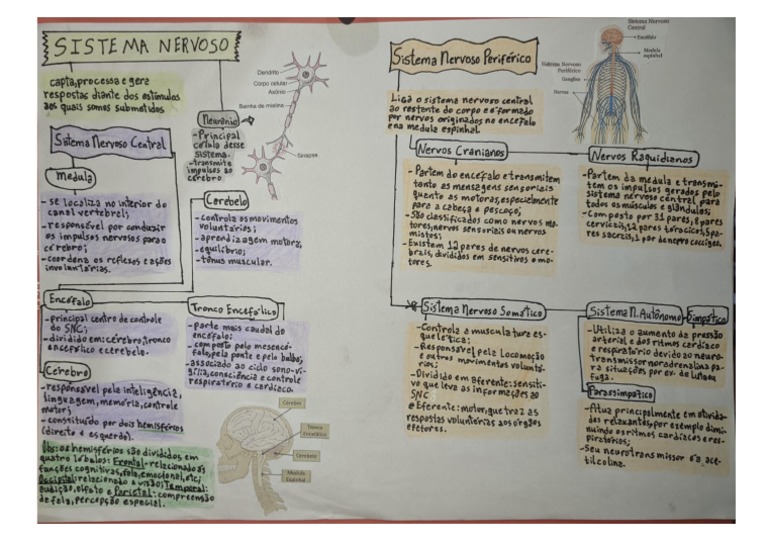 SISTEMA NERVOSO
capta, processa e gera
respostas diante dos estímulos
aos quais somos submetidos
Sistema Nervoso Central
Medula
- se localiza no interior do
canal vertebral;
- responsável por conduzir
os impulsos nervosos para o
cérebro;
- coordena os reflexos e ações
involuntárias.
Neurônio
- Principal
célula desse
sistema.
- transmite
impulsos ao
cérebro.
Dendrito
Corpo celular
Axônio
Bainha de mielina
Sinapse
Cerebelo
- controla os movimentos
voluntários;
- aprendizagem motora;
- equilíbrio;
- tônus muscular.
Encéfalo
- principal centro de controle
do SNC;
- dividido em: cérebro, tronco
encefálico e cerebelo.
Tronco Encefálico
- parte mais caudal do
encéfalo;
- composto pelo mesencé-
falo, pela ponte e pelo bulbo;
- associado ao ciclo sono-vi-
gília, consciência e controle
respiratório e cardíaco.
Cérebro
- responsável pela inteligência,
linguagem, memória, controle
motor;
- constituído por dois hemisférios
(direito e esquerdo).
Obs: os hemisférios são divididos em
quatro lóbulos: Frontal- relacionado às
funções cognitivas, fala, emocional, etc;
Occipital: relacionado a visão; Temporal:
audição, olfato e Parietal- compreensão
da fala, percepção espacial.
Cérebro
Tronco
Encefálico
Cerebelo
Medula
Espinhal
Sistema Nervoso Periférico
Liga o sistema nervoso central
ao restante do corpo e é formado
por nervos originados no encéfalo
e na medula espinhal.
Sistema Nervoso
Central
Encéfalo
Medula
espinhal
Sistema Nervoso
Periférico
Ganglios
Nervos
Nervos Cranianos
- Partem do encéfalo e transmitem
tanto as mensagens sensoriais
quanto as motoras, especialmente
para a cabeça e pescoço;
- São classificados como nervos mo-
tores, nervos sensoriais ou nervos
mistos;
- Existem 12 pares de nervos cere-
brais, divididos em sensitivos e mo-
tores.
Nervos Raquidianos
- Partem da medula e transmi-
tem os impulsos gerados pelo
sistema nervoso central, para
todos os músculos e glândulas;
- Composto por 31 pares, 8 pares
cervicais, 12 pares torácicos, 5 pa-
res sacrais, 1 par de nervo coccígeo.
Sistema Nervoso Somático
- Controla a musculatura es-
quelética;
- Responsável pela Locomoção
e outros movimentos voluntá-
rios;
- Dividido em aferente: sensiti-
vo que leva as informações ao
SNC
e Eferente: motor, que traz as
respostas voluntárias aos órgãos
efetores.
Sistema N. Autônomo - Simpático
- Utiliza o aumento da pressão
arterial e dos ritmos cardíaco
e respiratório devido ao neuro-
transmissor noradrenalina pa-
ra situações por ex. de luta ou
fuga.
Parassimpático
- Atua principalmente em ativida-
des relaxantes, por exemplo dimi-
nuindo os ritmos cardíacos e res-
piratórios;
- Seu neurotransmissor é a ace-
tilcolina.